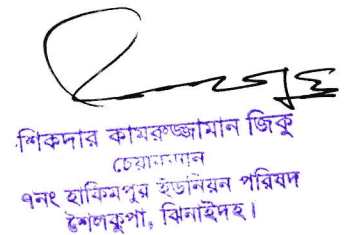 শিকদার কামরুজ্জামান জিকু
চেয়ারম্যান
৭নং হাকিমপুর ইউনিয়ন পরিষদ
শৈলকুপা, ঝিনাইদহ।